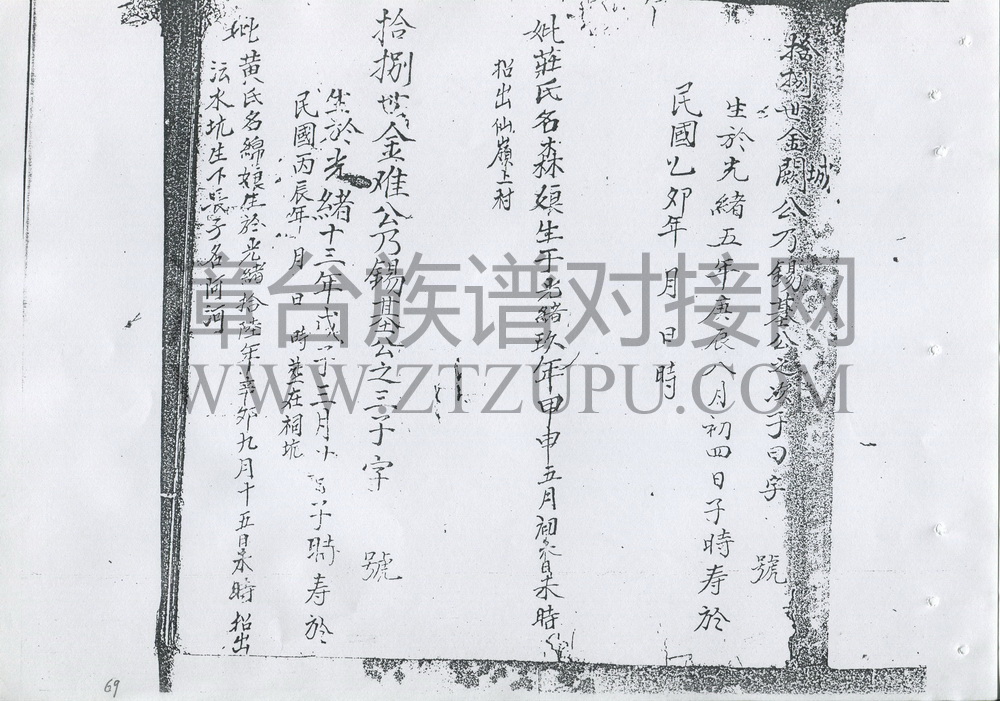 拾捌世金闕公乃錫基公之次子曰字 號
城
生於光緒五年庚辰八月初四日子時寿於
民國乙卯年 月 日 時
妣莊氏名森娘生于光緒玖年甲申五月初 日未時
招出仙嶺上村
拾捌世金难公乃錫基公之三子字 號
生於光緒十三年戊子三月 子時寿於
民國丙辰年 月 日 時葬在祠坑
妣黄氏名綿娘生於光緒拾陸年辛卯九月十五日未時招出
沄水坑生下長子名阿河
章台族谱对接网
WWW.ZTZUPU.COM
69